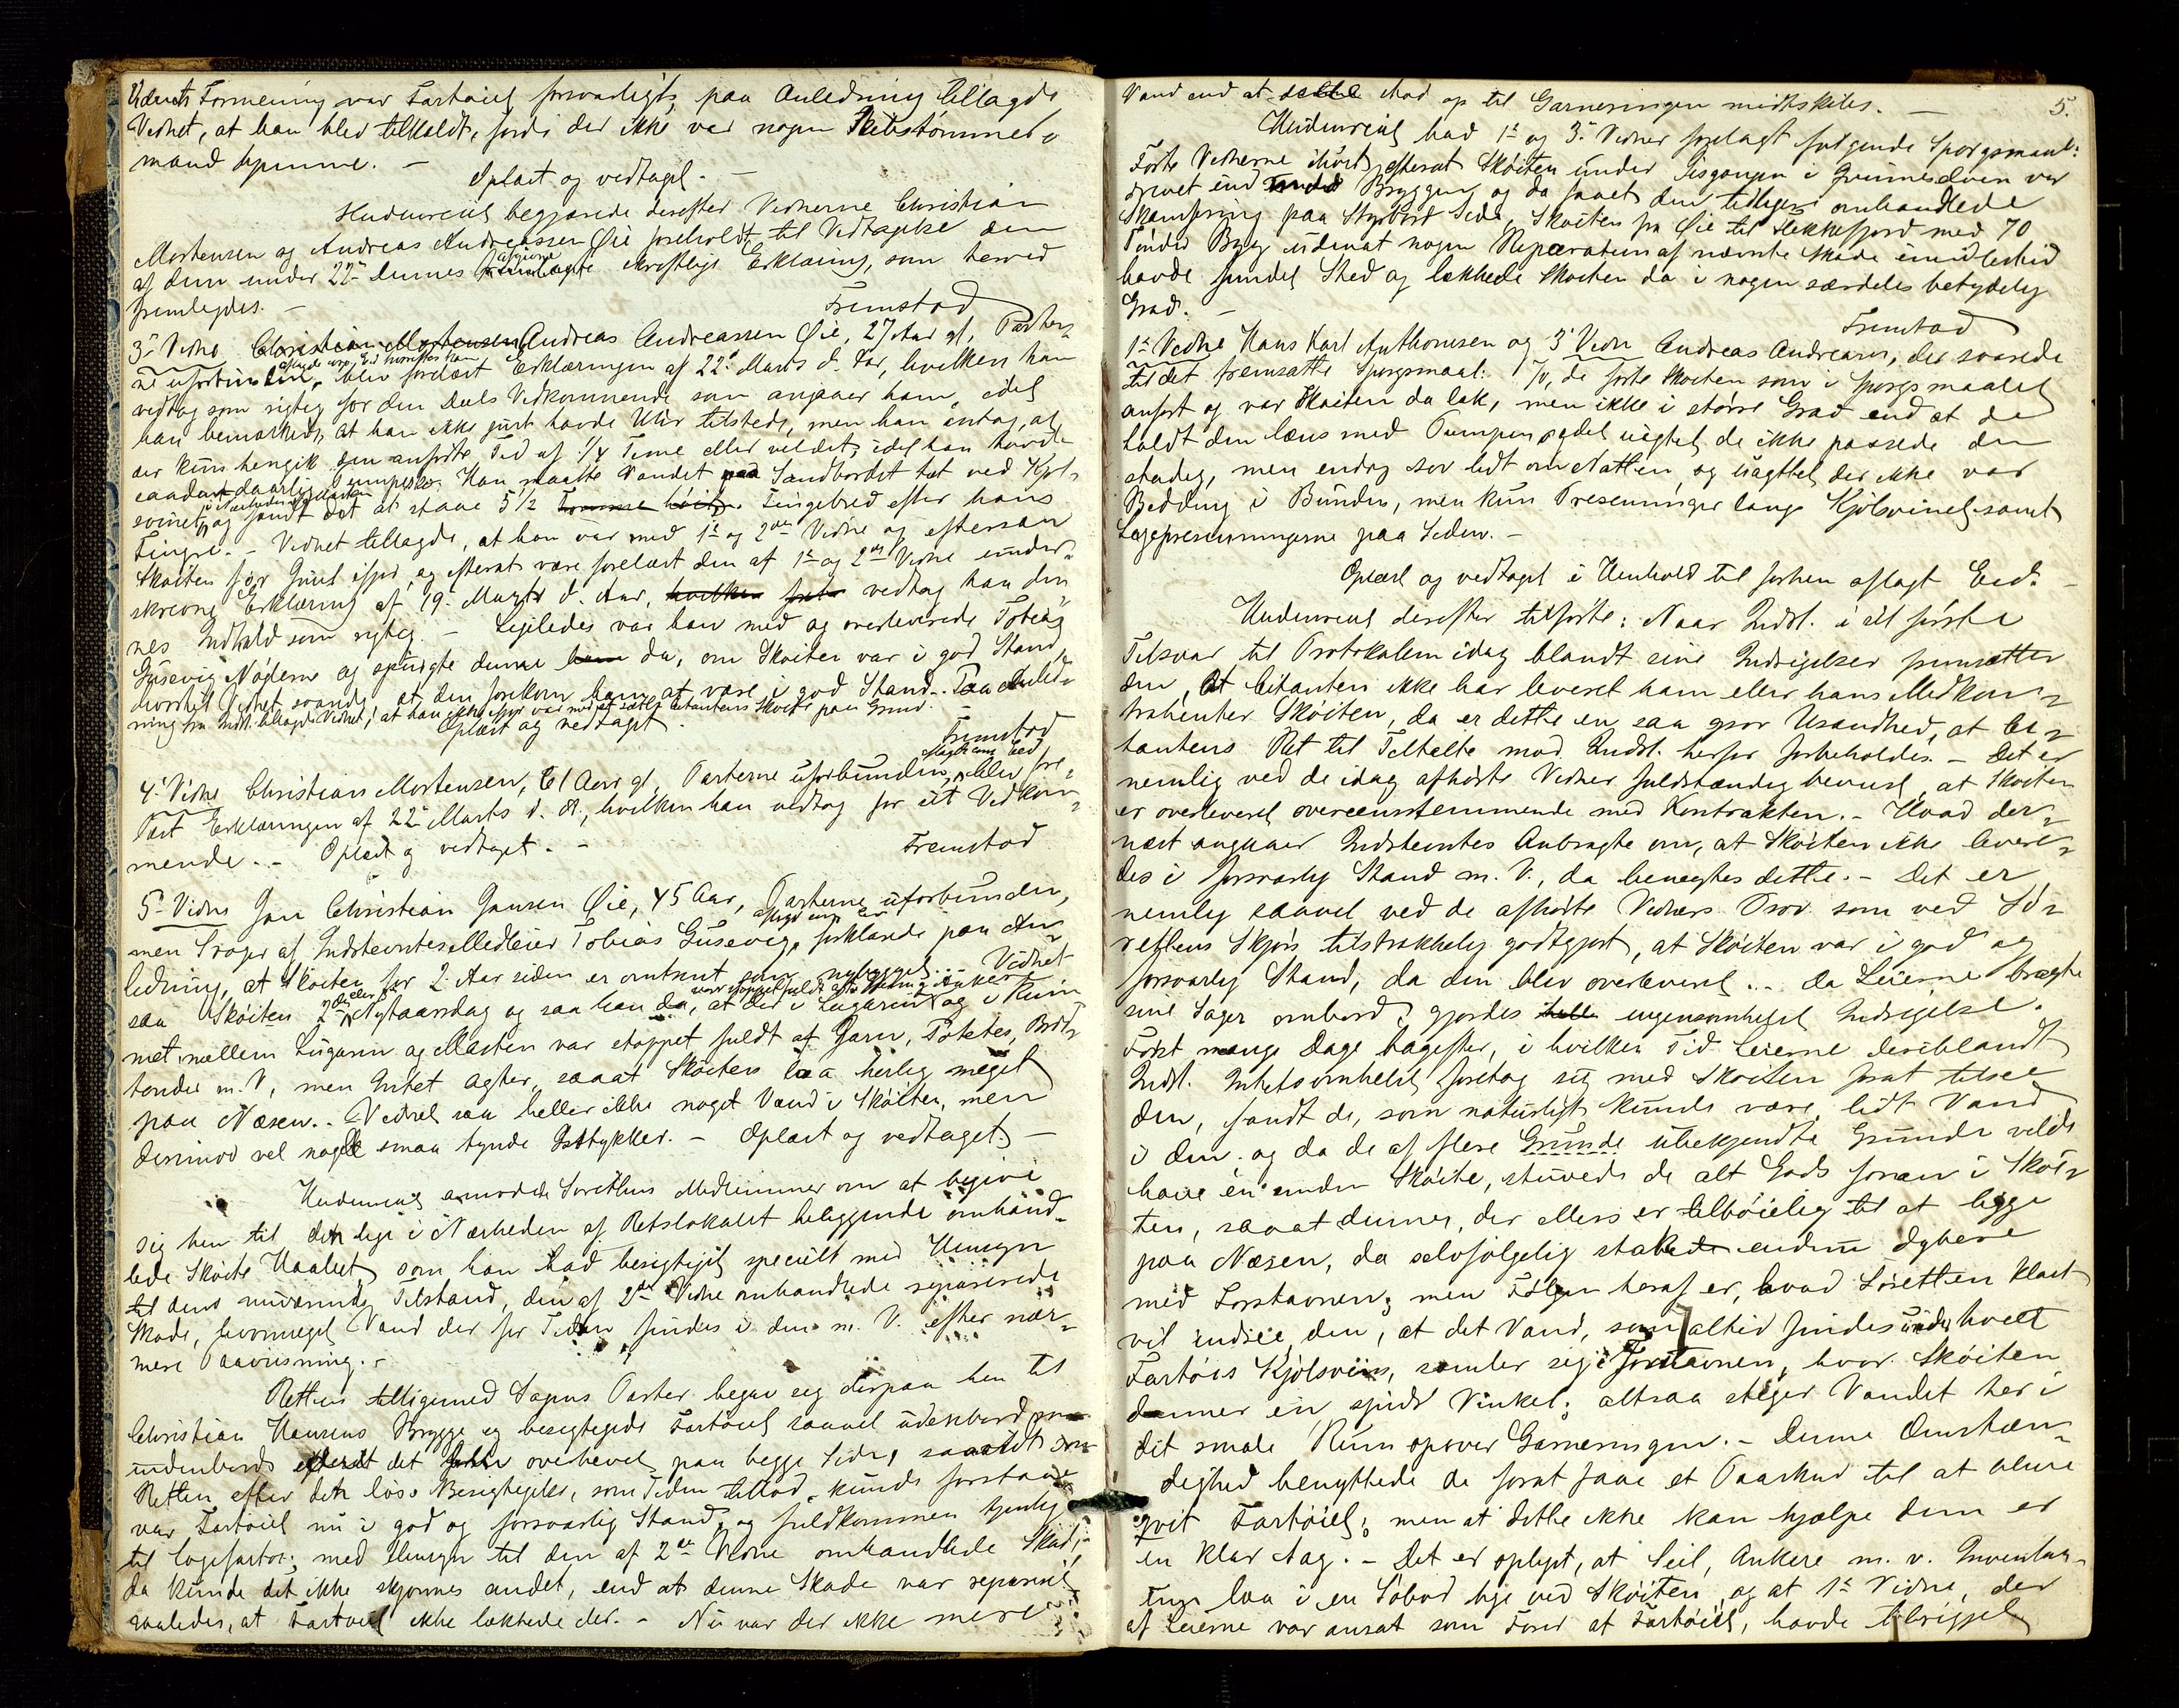 Vidnets Formening var Fartøiet forsvarligt, paa Anledning tillagde
Vidnet, at han blev tilkaldt, fordi der ikke var nogen Skibstømmer-
mand hjemme. —
Oplæst og vedtaget. —
Hudenreich begjærede derefter Vidnerne Christian
Mortensen og Andreas Andreassen Øie foreholdt til Vedtagelse den
af dem under 22de dennes afgivne skriftlige Erklæring, som herved
fremlægdes. —
Fremstod
3de Vidne Christian Mortensen Andreas Andreassen Øie, 27 Aar gl., Parter-
ne uforbunden, blev forelæst Erklæringen af 22de Marts d. Aar, hvilken han
vedtog som rigtig for den Deels Vedkommende som angaaer ham, idet
han bemærkede, at han ikke just havde Uhr tilstede, men han antog, at
der kun hengik den anførte Tid af 1/4 Time eller vel det, idet han havde
saadant daarlig Pumpesko. Han maalte Vandet paa Sandbordet tæt ved Kjøl-
svinet og fandt det at staae 5 1/2 Tomme høit Fingebred efter hans
Fingre. — Vidnet tillagde, at han var med 1ste og 2det Vidne og eftersaae
Skøiten før Juul ifjor, og efterat være forelæst den af 1ste og 2det Vidne under-
skrevne Erklæring af 19de Marts d. Aar, hvilken vedtog han den-
nes Indhold som rigtig. — Ligeledes var han med og overleverede Tobias
Gusevig Nøglerne og spurgte denne ham da, om Skøiten var i god Stand,
hvortil Vidnet svarede, at den forekom ham at være i god Stand. — Paa Anled-
ning fra Indst. tillagde Vidnet, at han ikke ifjor var med at sætte Citantens Skøite paa Grund. —
Oplæst og vedtaget
Fremstod
aflagde sin Eed
4de Vidne Christian Mortensen, 61 Aar gl., Parterne uforbunden, blev fore-
læst Erklæringen af 22de Marts d. A., hvilken han vedtog for sit Vedkom-
mende. — Oplæst og vedtaget. —
Fremstod
5te Vidne Jan Christian Jansen Øie, 45 Aar, Parterne uforbunden,
men Svoger af Indstevntes Medleier Tobias Gusevig, forklarede paa An-
ledning, at Skøiten for 2 Aar siden er omtrent som nybygget. Vidnet
saa Skøiten 2den Nytaarsdag og saa han da, at der i Lugaren og i Rum-
met mellem Lugaren og Masten var stoppet fuldt af Garn, Poteter, Brød-
tønder m. V., men Intet agter, saaat Skøiten laa herlig meget
paa Næsen. — Vidnet saa heller ikke noget Vand i Skøiten, men
derimod vel nogle smaa tynde Isstykker. — Oplæst og vedtaget. —
Hudenreich anmodede Sørettens Medlemmer om at begive
sig hen til den lige i Nærheden af Retslokalet beliggende omhand-
lede Skøite Haabet, som han bad besigtiget specielt med Hensyn
til dens nuværende Tilstand, den af 2det Vidne omhandlede reparerede
Skade, hvormeget Vand der for Tiden findes i den m. V. efter nær-
mere Paaviisning. —
Retten tilligemed Sagens Parter begav sig derpaa hen til
Christian Hansens Brygge og besigtigede Fartøiet saavel udenbord som
indenbords efterat det blev overhevet paa begge Sider, saavidt som
Retten efter den løse Besigtigelse, som Tiden tillod, kunde forstaae
var Fartøiet nu i god og forsvarlig Stand, og fuldkommen tjenlig
til Logefartøi; med Hensyn til den af 2det Vidne omhandlede Skade,
da kunde det ikke skjønnes andet, end at denne Skade var repareret
saaledes, at Fartøiet ikke lækkede der. — Nu var der ikke mere
5.
Vand end at dette stod op til Garneringen midtskibs. —
Hudenreich bad 1ste og 3de Vidner forelagt følgende Spørgsmaal:
Førte Vidnerne ihøst, efterat Skøiten under Iisgangen i Qvinesdalen var
drevet ind under Bryggen og da faaet den tidligere omhandlede
Skamfering paa Styrbord Side, Skøiten fra Øie til Flekkefjord med 70
Tønder Byg udenat nogen Reparation af nævnte Skade imidlertid
havde fundet Sted og lækkede Skøiten da i nogen særdeles betydelig
Grad. —
Fremstod
1ste Vidne Hans Karl Anthonisen og 3de Vidne Andreas Andreasen, der svarede
til det fremsatte Spørgsmaal: Jo, de førte Skøiten som i Spørgsmaalet
anført og var Skøiten da læk, men ikke i større Grad end at de
holdt den læns med Pumpen, idet uagtet de ikke passede den
stadig, men endog sov lidt om Natten, og uagtet der ikke var
Bedding i Bunden, men kun Presenninger langs Kjølsvinet samt
Lagepresenningerne paa Siden. —
Oplæst og vedtaget i Henhold til forhen aflagt Eed. —
Hudenreich derefter tilførte: Naar Indst. i sit første
Tilsvar til Protokolen idag blandt sine Indsigelser fremsætter
den, at Citanten ikke har leveret ham eller hans Medkon-
trahenter Skøiten, da er dette en saa grov Usandhed, at Ci-
tantens Ret til Tiltale mod Indst. herfor forbeholdes. — Det er
nemlig ved de idag afhørte Vidner fuldstændig beviist, at Skøiten
er overleveret overeensstemmende med Kontrakten. — Hvad der-
næst angaaer Indstevntes Anbragte om, at Skøiten ikke levere-
des i forsvarlig Stand m. V., da benegtes dette. — Det er
nemlig saavel ved de afhørte Vidners Prov som ved Sø-
rettens Skjøn tilstrækkelig godtgjort, at Skøiten var i god og
forsvarlig Stand, da den blev overleveret. — da Leierne bragte
sine Sager ombord, gjordes ingensomhelst Indsigelse.
Først mange Dage bagefter, i hvilken Tid Leierne deriblandt
Indst. Intetsomhelst foretog sig med Skøiten forat tilsee
den, fandt de, som naturligt kunde være, lidt Vand
i den, og da de af flere Grunde ubekjendte Grunde vilde
have en anden Skøite, stuvede de alt Gods foran i Skøi-
ten, saaat denne, der ellers er tilbøielig til at ligge
paa Næsen, da selvfølgelig stak endnu dybere
med Forstavnen; men Følgen heraf er, hvad Søretten klart
vil indsee, den, at det Vand, som altid findes under hvert
Fartøis Kjølsviin, samler sig i Forstavnen, hvor Skøiten
danner en spids Vinkel; altsaa stiger Vandet her i
det smale Rum opover Garneringen. — Denne Omstæn-
dighed benyttede de forat faae et Paaskud til at blive
qvit Fartøiet; men at dette ikke kan hjælpe dem er
en klar Sag. — Det er oplyst, at Seil, Ankere m. v. Inventar-
ium laa i en Søbod lige ved Skøiten, og at 1ste Vidne, der
af Leierne var ansat som Fører af Fartøiet, havde tilrigget